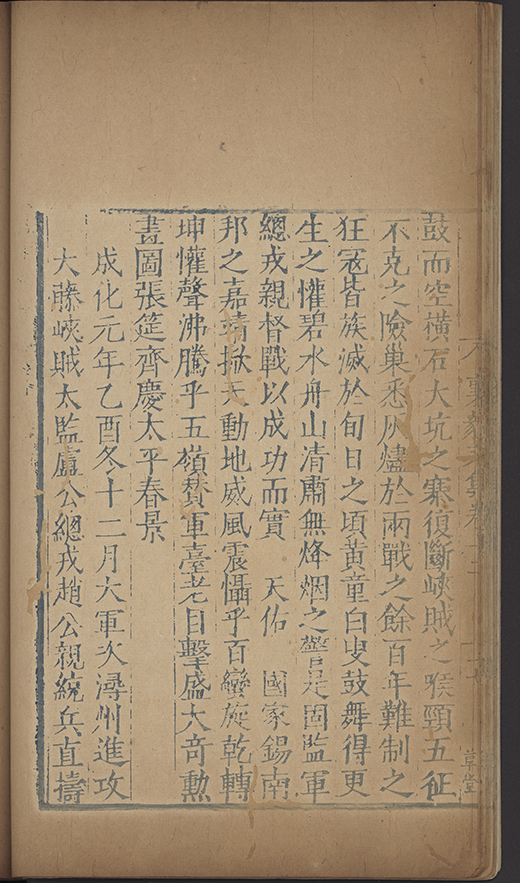 鼓而空橫石大坑之寨復斷峽賊之喉頸五征
不克之險巢悉灰燼於兩戰之餘百年難制之
狂寇皆族滅於旬日之頃黃童白叟鼓舞得更
生之懽碧水舟山清肅無烽烟之警是固監軍
總戎親督戰以成功而實　天佑　國家錫南
邦之嘉靖掀天動地威風震懾乎百蠻旋乾轉
坤懽聲沸騰乎五嶺贊軍臺老目擊盛大奇勲
畫圖張筵齊慶太平春景
成化元年乙酉冬十二月大軍次潯州進攻
大藤峽賊太監盧公總戎趙公親統兵直擣
草堂